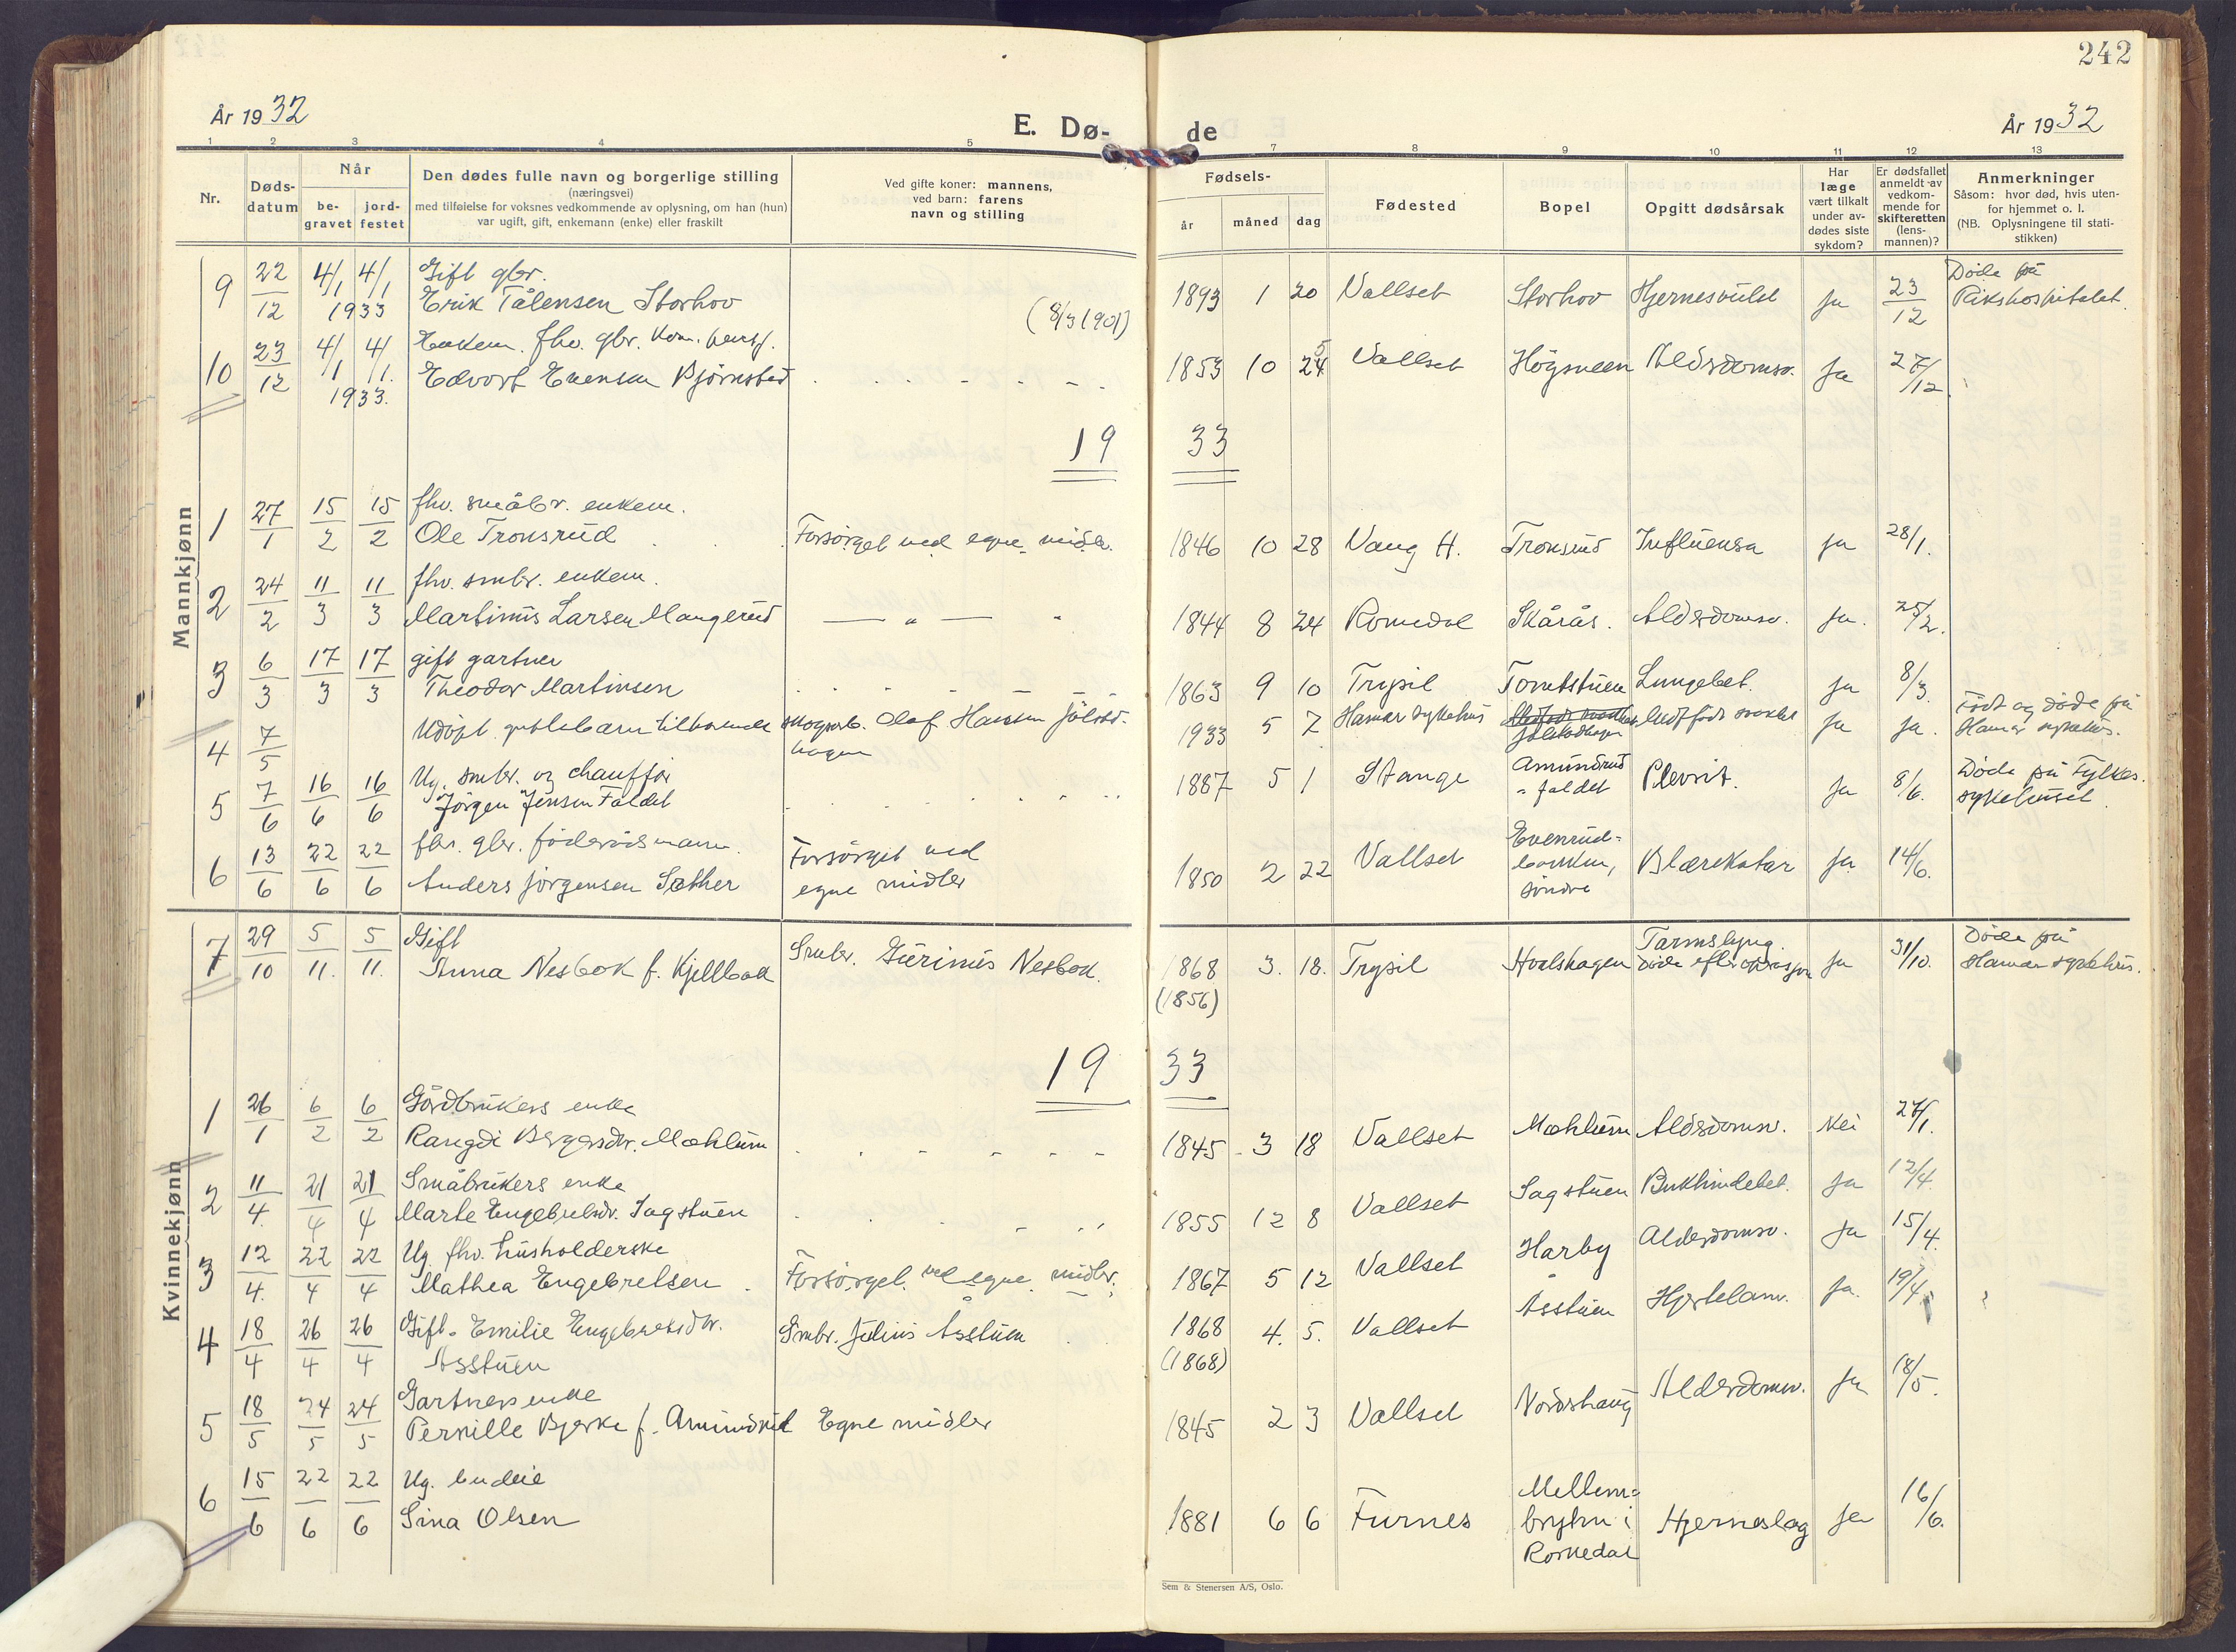 242
År 1932
E. Dø-
de
År 1932
1 2 3 4 5 7 8 9 10 11 12 13
Nr.
Døds-
datum
Når
be-
gravet
jord-
festet
Den dødes fulle navn og borgerlige stilling
(næringsvei)
med tilføielse for voksnes vedkommende av oplysning, om han (hun)
var ugift, gift, enkemann (enke) eller fraskilt
Ved gifte koner: mannens,
ved barn: farens
navn og stilling
Fødsels-
år
måned
dag
Fødested
Bopel
Opgitt dødsårsak
Har
læge
vært tilkalt
under av-
dødes siste
sykdom?
Er dødsfallet
anmeldt av
vedkom-
mende for
skifteretten
(lens-
mannen)?
Anmerkninger
Såsom: hvor død, hvis uten-
for hjemmet o. l.
(NB. Oplysningene til stati-
stikken)
Mannkjønn
9 22/12 4/1 4/1 1933 Gift gbr.
Erik Tålensen Storhov (8/3 1901) 1893 1 20 Vallset Storhov Hjernesvulst Ja 23/12 Døde på
Rikshospitalet.
10 23/12 4/1 4/1 1933. Enkem. fhv. gbr. kom.
Edvart Evensen Bjørnstad 1853 10 24 5 Vallset Högsveen Aldsdomsv. Ja 27/12
19 33
1 27/1 15/2 15/2 fhv. småbr. enkem.
Ole Tronsrud Forsörget ved egne midler. 1846 10 28 Vang H. Tronsrud Influensa ja 28/1.
2 24/2 11/3 11/3 fhv. smbr. enkem.
Martinus Larsen Mangerud — " — 1844 8 24 Romedal Skårås. Aldsdomsv. ja. 25/2.
3 6/3 17/3 17/3 gift gartner
Theodor Martinsen 1863 9 10 Trysil Tomtstuen Lungebet. ja 8/3.
4 7/5 Udöpt guttebarn tilhørende skogsarb. Olaf Hansen Jölstad-
hagen 1933 5 7 Hamar sykehus Jölstadhagen Medfödt svakhet ja ja. Födt og døde på
Hamar sykehus.
5 7/6 16/6 16/6 Ug. smbr. og chauffør
Jörgen Jensen Faldet 1887 5 1 Stange Amundrud
- faldet Plevrit. ja 8/6. Døde på Fylkes.
sykehuset.
6 13/6 22/6 22/6 fhv. gbr. föderådsmann.
Anders Jörgensen Sæther Forsörget ved
egne midler 1850 2 22 Vallset Evenrud-
bakken,
söndre Blærekatar ja 14/6.
7 29/10 5/11. 5/11. Gift
Anna Nesbak f. Kjellbak Smbr. Gurinus Nesbak. 1868 3. 18. Trysil Hvalshagen Tarmslyng.
Døde efter operasjon ja 31/10. Døde på
Hamar sykehus.
(1856)
19 33
Kvinnekjønn
1 26/1 6/2 6/2 Gårdbrukers enke
Rangdi Bergersdtr. Mæhlum 1845 3 18 Vallset Mæhlum Aldsdomsv. Nei 27/1.
2 11/4. 21/4 21/4 Småbrukers enke
Marte Engebretsdr. Sagstuen 1855 12 8 Vallset Sagstuen Bukhindebet. ja 12/4.
3 12/4. 22/4 22/4 Ug. fhv. husholderske
Mathea Engebretsen Forsörget ved egne midler. 1867 5 12 Vallset Harby Aldersdomsv. ja 15/4.
4 18/4 26/4 26/4 Gift. Emilie Engebretsdtr.
Åsstuen Smbr. Julius Åsstuen 1868 4. 5. Vallset Åsstuen Hjertelam. ja. 19/4.
(1868)
5 18/5 24/5 24/5 Gartners enke
Pernille Bjerke f. Amundrud Egne midler 1845 2 3 Vallset Nordshaug Aldersdomsv. ja 18/5.
6 15/6 22/6 22/6 Ug. budeie
Sina Olsen 1881 6 6 Furnes Mellem-
bryhn i
Romedal Hjerneslag ja 16/6.
Sem & Stenersen A/S, Oslo.